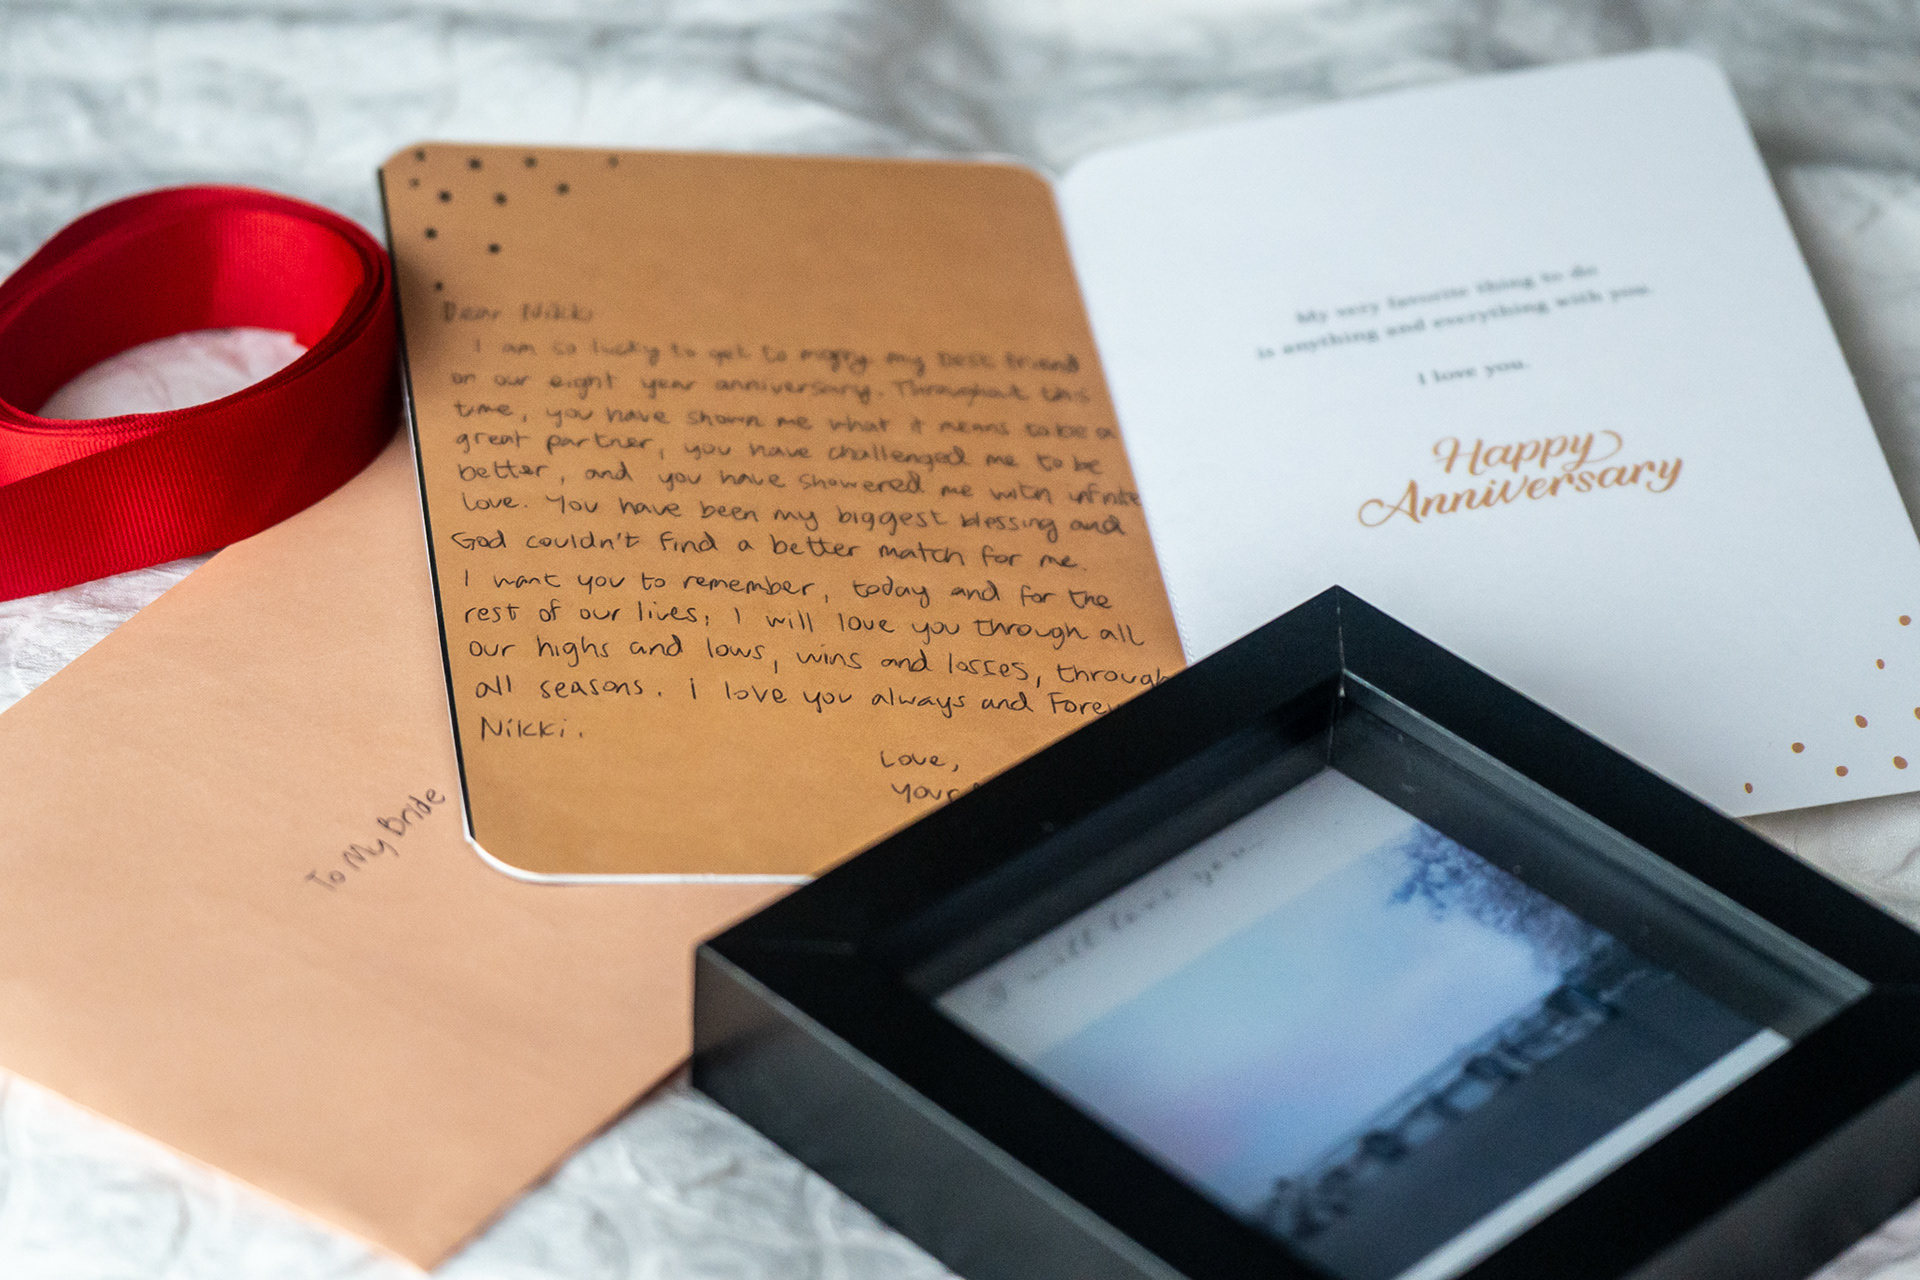 Dear Nikki
I am so lucky to get to marry my best friend
on our eight year anniversary. Throughout this
time, you have shown me what it means to be a
great partner, you have challenged me to be
better, and you have showered me with infinite
love. You have been my biggest blessing and
God couldn't find a better match for me.
I want you to remember, today and for the
rest of our lives, I will love you through all
our highs and lows, wins and losses, through
all seasons. i love you always and
Nikki.
Love,
To My Bride
My very favorite thing to do
is anything and everything with you.
I love you.
Happy
Anniversary
I will love you...